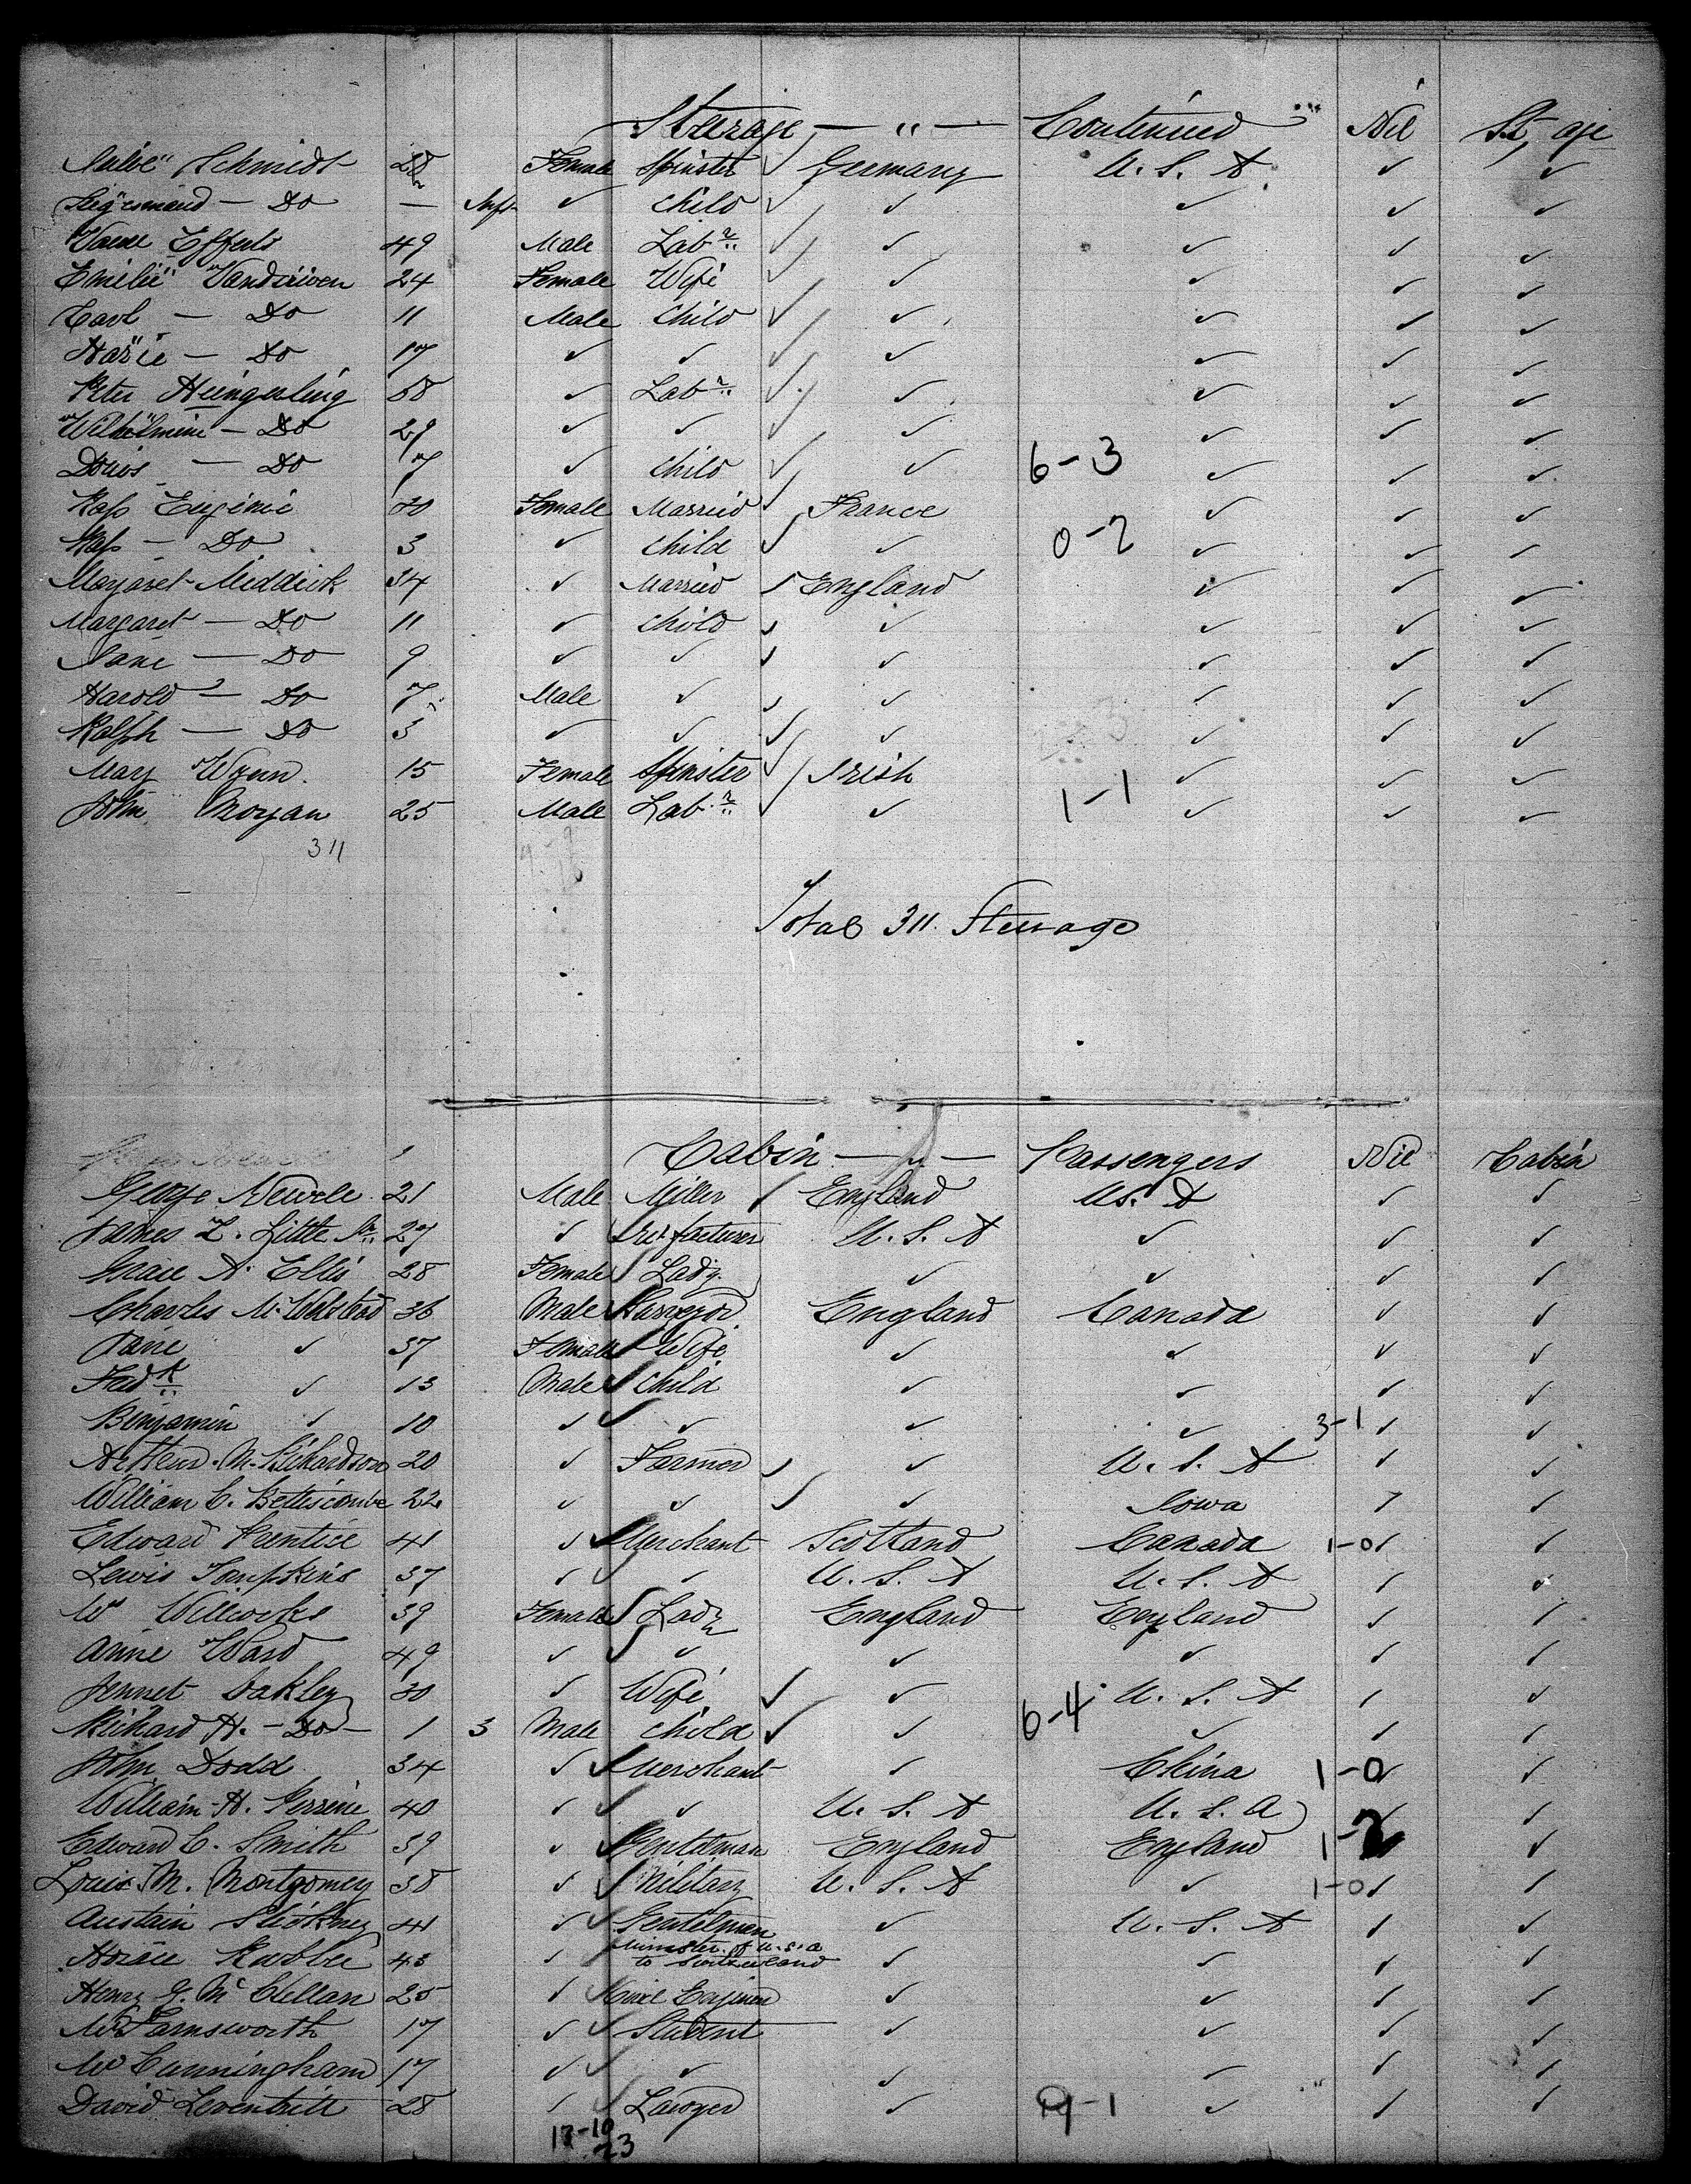 Steerage — " — Continued Nil St, age
Schmidt 28 Female Spinster ✓ Germany U. S. A. ✓ ✓
— Do — Inft ✓ Child ✓ ✓ ✓ ✓ ✓
Efferts 49 Male Labr ✓ ✓ ✓ ✓ ✓
Emilie 24 Female Wife ✓ ✓ ✓ ✓ ✓
Carl — Do 11 Male Child ✓ ✓ ✓ ✓ ✓
— Do 17 ✓ ✓ ✓ ✓ ✓ ✓ ✓
Peter 58 ✓ Labr ✓ ✓ ✓ ✓ ✓
— Do 29 ✓ ✓ ✓ ✓ ✓ ✓ ✓
— Do 7 ✓ Child ✓ ✓ 6-3 ✓ ✓ ✓
Eugenie 20 Female Married ✓ France ✓ ✓ ✓
— Do 3 ✓ Child ✓ ✓ 0-2 ✓ ✓ ✓
Margaret Middick 34 ✓ Married ✓ England ✓ ✓ ✓
Margaret — Do 11 ✓ Child ✓ ✓ ✓ ✓ ✓
Jane — Do 9 ✓ ✓ ✓ ✓ ✓ ✓ ✓
Harold — Do 7 Male ✓ ✓ ✓ ✓ ✓ ✓
Ralph — Do 3 ✓ ✓ ✓ ✓ ✓ ✓ ✓
Mary 15 Female Spinster ✓ Irish ✓ ✓ ✓
John Morgan 25 Male Labr ✓ ✓ 1-1 ✓ ✓ ✓
311
Total 311. Steerage
Cabin — " — Passengers Nil Cabin
George 21 Male Miller ✓ England U.S. A ✓ ✓
James L. Little Jr 27 ✓ U. S. A ✓ ✓ ✓
Grace A. Ellis 28 Female ✓ Lady ✓ ✓ ✓ ✓
Charles 36 Male Surveyor England Canada ✓ ✓
Jane ✓ 37 Female ✓ Wife ✓ ✓ ✓ ✓
Fredk ✓ 13 Male ✓ Child ✓ ✓ ✓ ✓
Benjamin ✓ 10 ✓ ✓ ✓ ✓ ✓ 3-1 ✓ ✓
Arthur M. Richardson 20 ✓ Farmer ✓ ✓ U. S. A ✓ ✓
William C. Bettiscombe 22 ✓ ✓ ✓ ✓ Iowa ✓ ✓
Edward Prentice 41 ✓ ✓ Merchant Scotland Canada 1-0 ✓ ✓
Lewis Tompkins 37 ✓ ✓ ✓ U. S. A U. S. A ✓ ✓
39 Female ✓ Lady England England ✓ ✓
Anne Ward 49 ✓ ✓ ✓ ✓ ✓ ✓ ✓
Jennet Oakley 30 ✓ Wife ✓ ✓ U. S. A ✓ ✓
Richard H. — Do — 1 3 Male Child ✓ ✓ 6-4 ✓ ✓ ✓
John Dodd 34 ✓ ✓ Merchant ✓ China 1-0 ✓ ✓
William H. Perrine 40 ✓ ✓ ✓ U. S. A U. S. A ✓ ✓
Edward C. Smith 39 ✓ Gentleman England England 1-2 ✓
Louis M. Montgomery 38 ✓ ✓ Military U. S. A ✓ 1-0 ✓ ✓
Austain Stickney 41 ✓ ✓ Gentelman ✓ U. S. A ✓ ✓
Horace Rublee 43 ✓ Minister of U.S.A to Switzerland ✓ ✓ ✓ ✓
Henry G. McClellan 25 ✓ Civil Engineer ✓ ✓ ✓ ✓
Farnsworth 17 ✓ ✓ Student ✓ ✓ ✓ ✓
Cunningham 17 ✓ ✓ ✓ ✓ ✓ ✓ ✓
David Leventritt 28 ✓ ✓ Lawyer ✓ 9-1 ✓ ✓ ✓
13-10
23